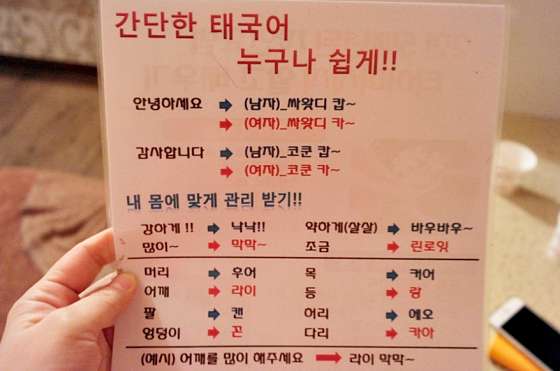 간단한 태국어
누구나 쉽게!!
안녕하세요 ➡ (남자)_싸왓디 캅~
➡ (여자)_싸왓디 카~
감사합니다 ➡ (남자)_코쿤 캅~
➡ (여자)_코쿤 카~
내 몸에 맞게 관리 받기!!
강하게 !! ➡ 낙낙!! 약하게(살살) ➡ 바우바우~
많이~ ➡ 막막~ 조금 ➡ 린로잇
머리 ➡ 우어 목 ➡ 커어
어깨 ➡ 라이 등 ➡ 랑
팔 ➡ 캔 허리 ➡ 에오
엉덩이 ➡ 꼰 다리 ➡ 카아
(예시) 어깨를 많이 해주세요 ➡ 라이 막막~